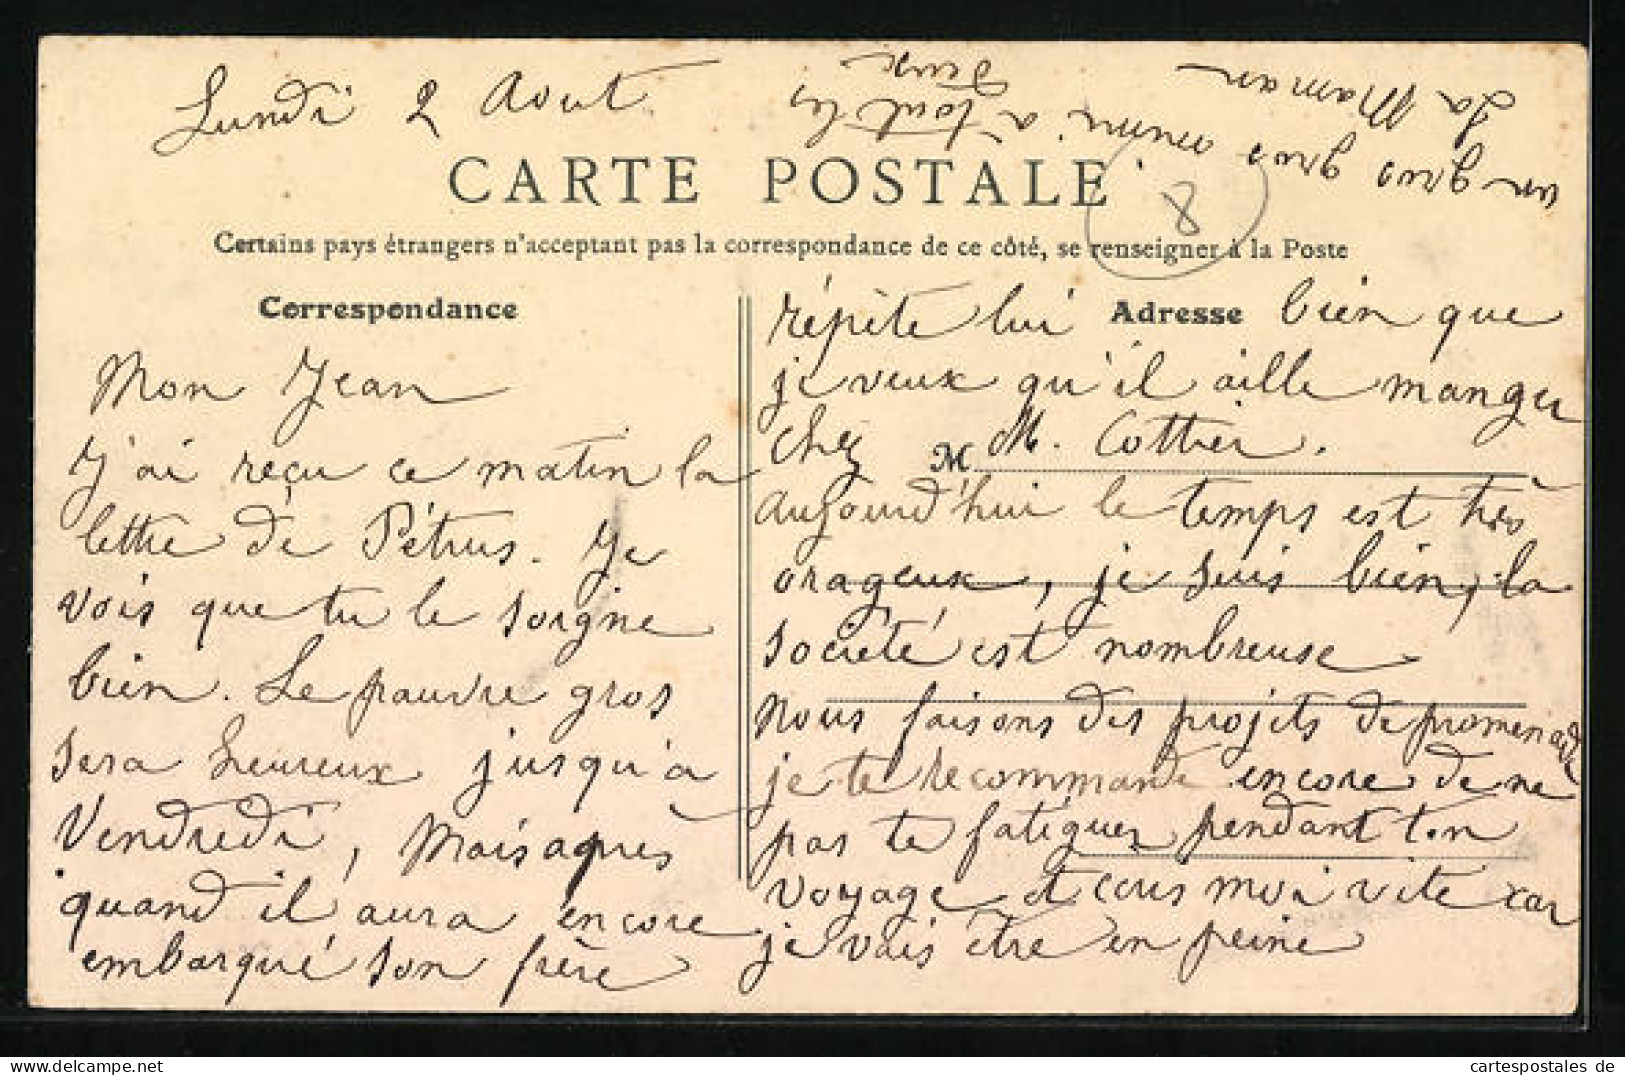 Lundi 2 Aout
CARTE POSTALE
8
Certains pays étrangers n'acceptant pas la correspondance de ce côté, se renseigner à la Poste
Correspondance
Mon Jean
J'ai reçu ce matin la
lettre de Pétrus. Je
vois que tu le soigne
bien. Le pauvre gros
sera heureux jusqu'à
Vendredi, Mais apres
quand il aura encore
embarqué son frère
Adresse
répète lui bien que
je veux qu'il aille manger
chez M. Cottier.
M
aujourd'hui le temps est très
orageux, je suis bien, la
société est nombreuse
Nous faisons des projets de promenade
je te recommande encore de ne
pas te fatiguer pendant ton
voyage et cris moi vite car
je vais être en peine
un gros gros mimi à tout les
deux
La Maman
cartespostales de